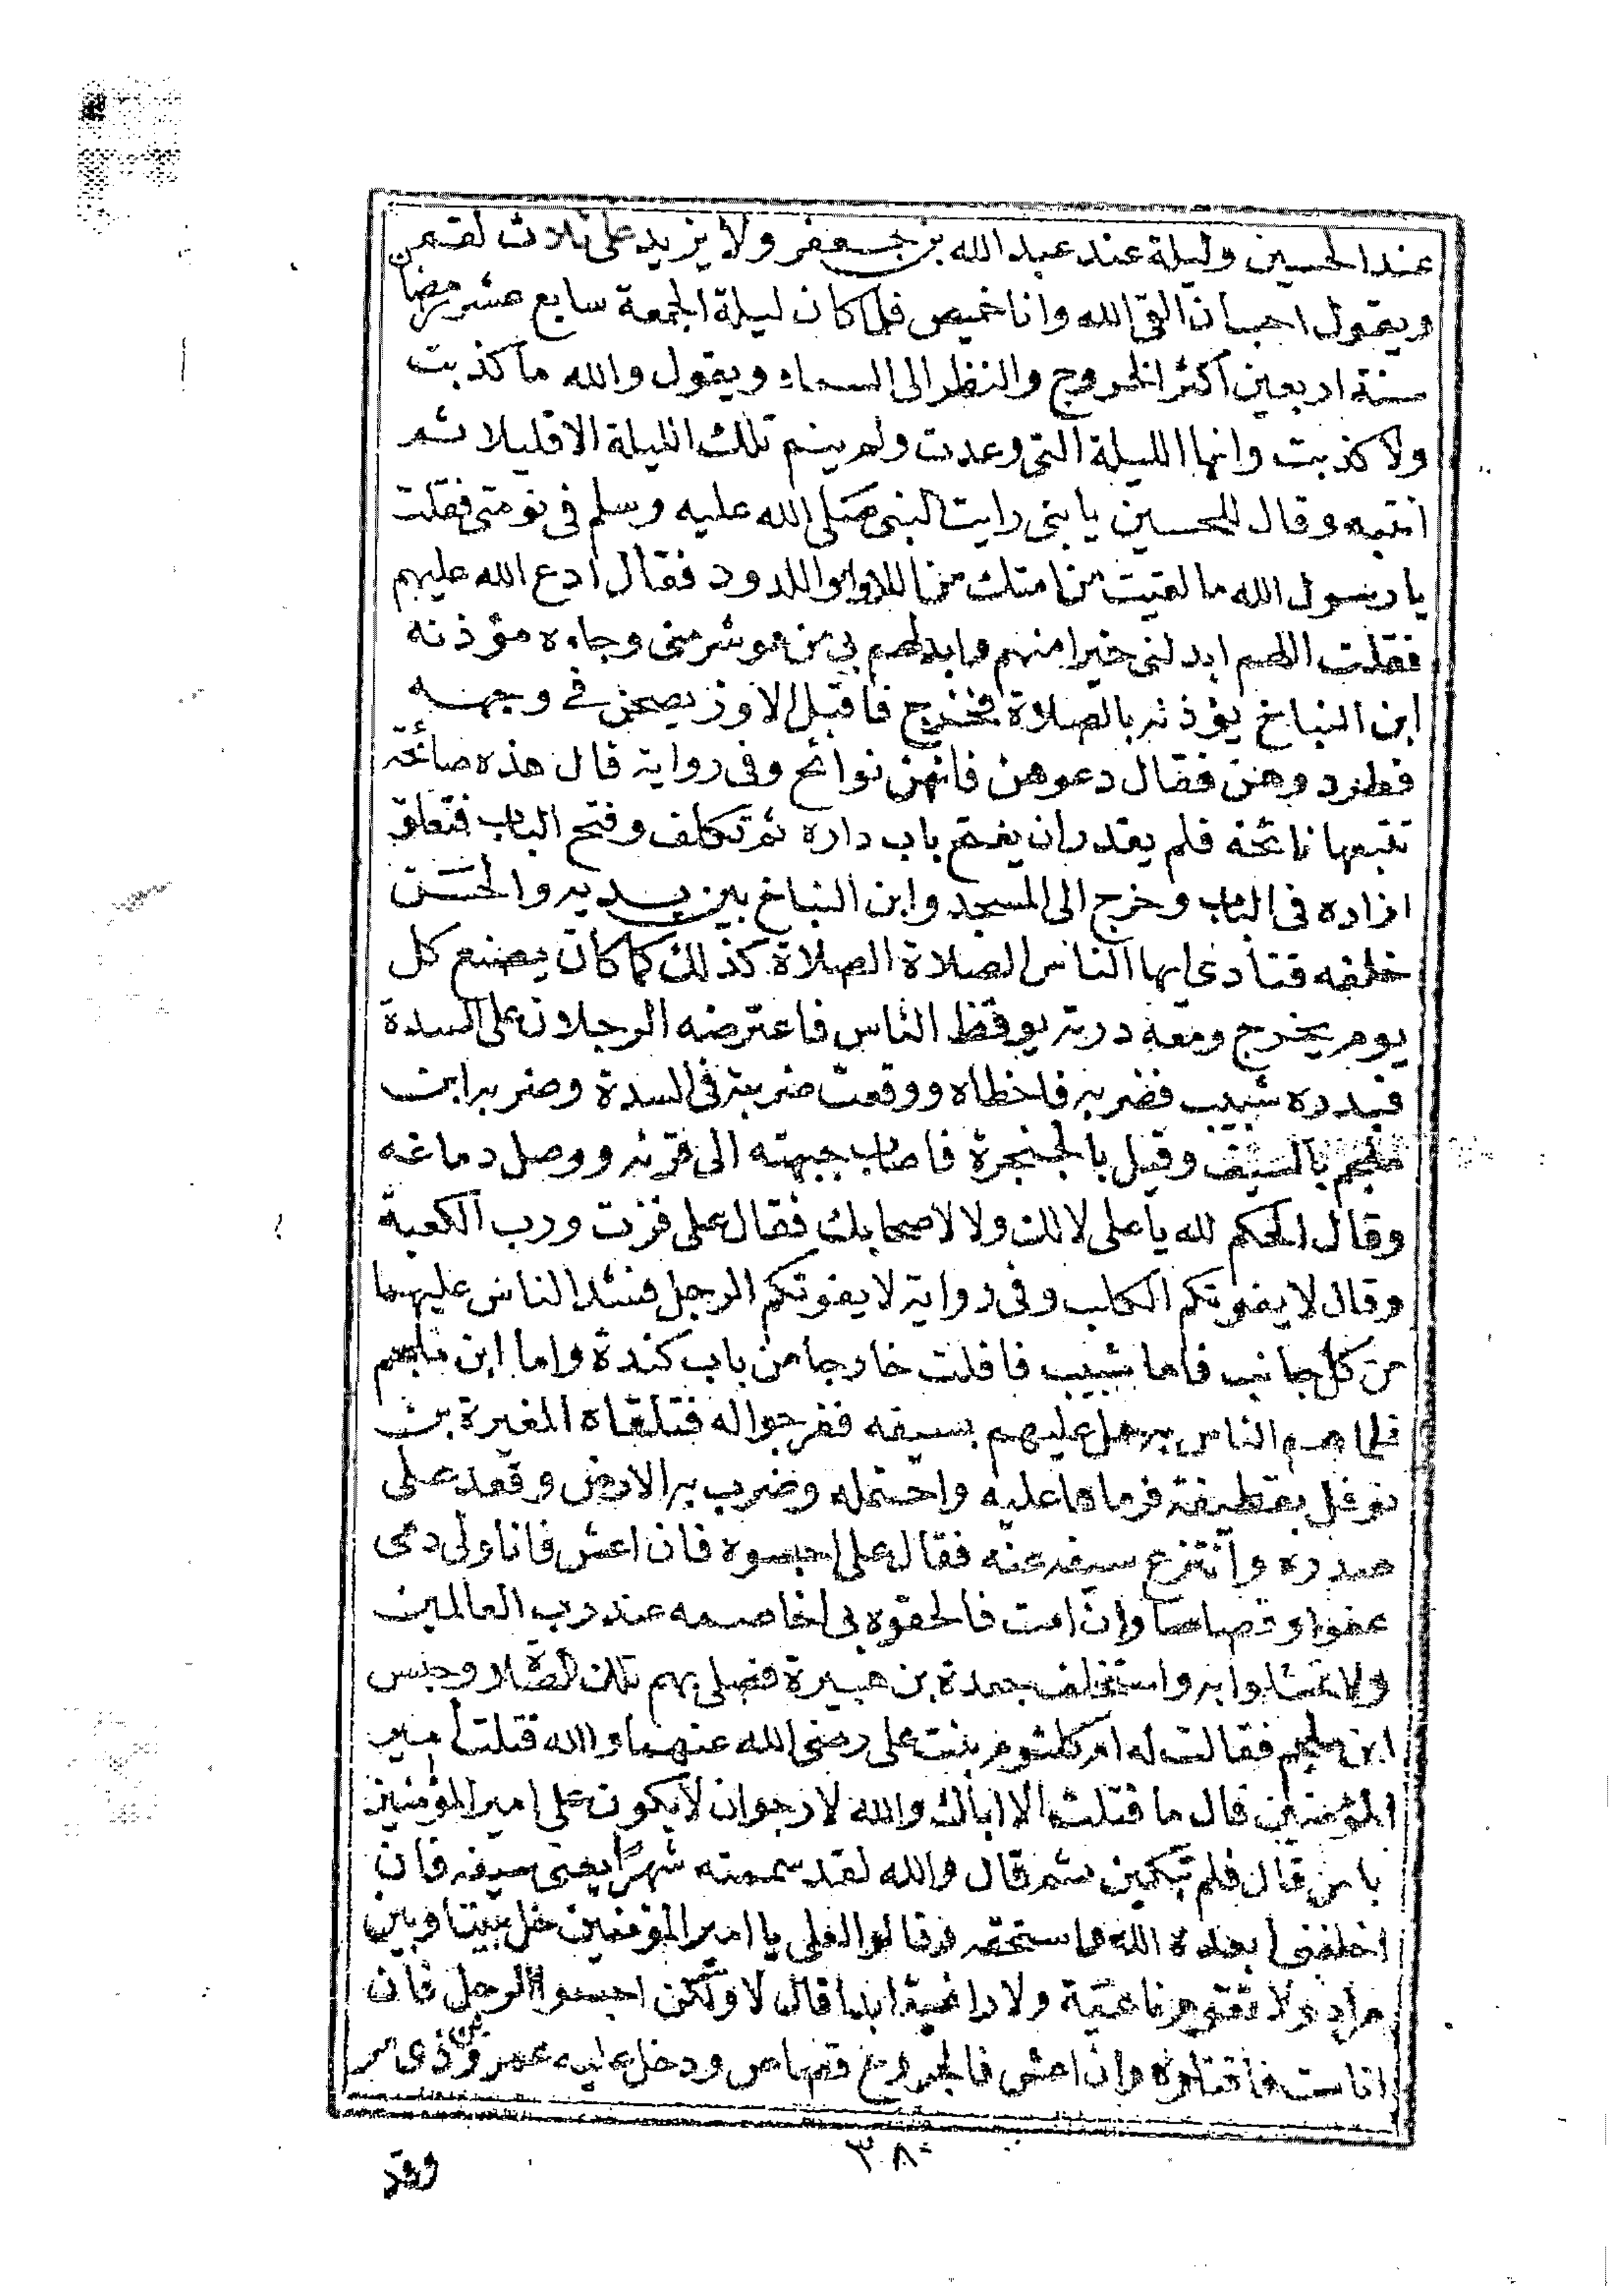 عند الحسين وليلة عند عبد الله بن جعفر ولا يزيد على ثلاث لقم
ويقول احب ان القى الله وانا خميص فلما كان ليلة الجمعة سابع عشر رمضان
سنة اربعين اكثر الخروج والنظر الى السماء ويقول والله ما كذبت
ولا كذبت وانها الليلة التى وعدت ولم ينم تلك الليلة الا قليلا ثم
انتبه وقال للحسين يا بنى رايت النبى صلى الله عليه وسلم فى نومتى فقلت
يا رسول الله ما لقيت من امتك من اللاواء واللدود فقال ادع الله عليهم
فقلت اللهم ابدلنى خيرا منهم وابدلهم بى من هو شر منى وجاءه مؤذنه
ابن النباخ يؤذنه بالصلاة فخرج فاقبل الاوز يصحن فى وجهه
فطردوهن فقال دعوهن فانهن نوائح وفى رواية قال هذه صائحة
تتبعها نائحة فلم يقدر ان يفتح باب داره ثم تكلف وفتح الباب فتعلق
ازاره فى الباب وخرج الى المسجد وابن النباخ بين يديه والحسن
خلفه فنادى ايها الناس الصلاة الصلاة كذلك كما كان يصنع كل
يوم يخرج ومعه درته يوقظ الناس فاعترضه الرجلان على السدة
فبدره شبيب فضربه فاخطاه ووقعت ضربته فى السدة وضربه ابن
ملجم بالسيف وقيل بالخنجرة فاصاب جبهته الى قرنه ووصل دماغه
وقال الحكم لله يا على لا لك ولا لاصحابك فقال على فزت ورب الكعبة
وقال لا يفوتكم الكلب وفى رواية لا يفوتكم الرجل فشد الناس عليهما
من كل جانب فاما شبيب فافلت خارجا من باب كندة واما ابن ملجم
فلما هم الناس به حمل عليهم بسيفه ففرجوا له فتلقاه المغيرة بن
نوفل بقطيفة فرماها عليه واحتمله وضرب به الارض وقعد على
صدره وانتزع سيفه عنه فقال على احبسوه فان اعش فانا ولى دمى
عفوا وقصاصا وان امت فالحقوه بى اخاصمه عند رب العالمين
ولا تمثلوا به واستخلف جعدة بن هبيرة فصلى بهم تلك الصلاة وحبس
ابن ملجم فقالت له ام كلثوم بنت على رضى الله عنهما والله قتلت امير
المؤمنين قال ما قتلت الا اباك والله لارجو ان لا يكون على امير المؤمنين
باس قال فلم تبكين ثم قال والله لقد سممته شهرا يعنى سيفه فان
اخلفنى ابعده الله واستحقه وقالوا لعلى يا امير المؤمنين خل بيننا وبين
مراد ولا تقوم ناعية ولا راغية ابدا قال لا ولكن احبسوا الرجل فان
انا مت فاقتلوه وان اعش فالجروح قصاص ودخل عليه عمرو
٣٨٠
وقد